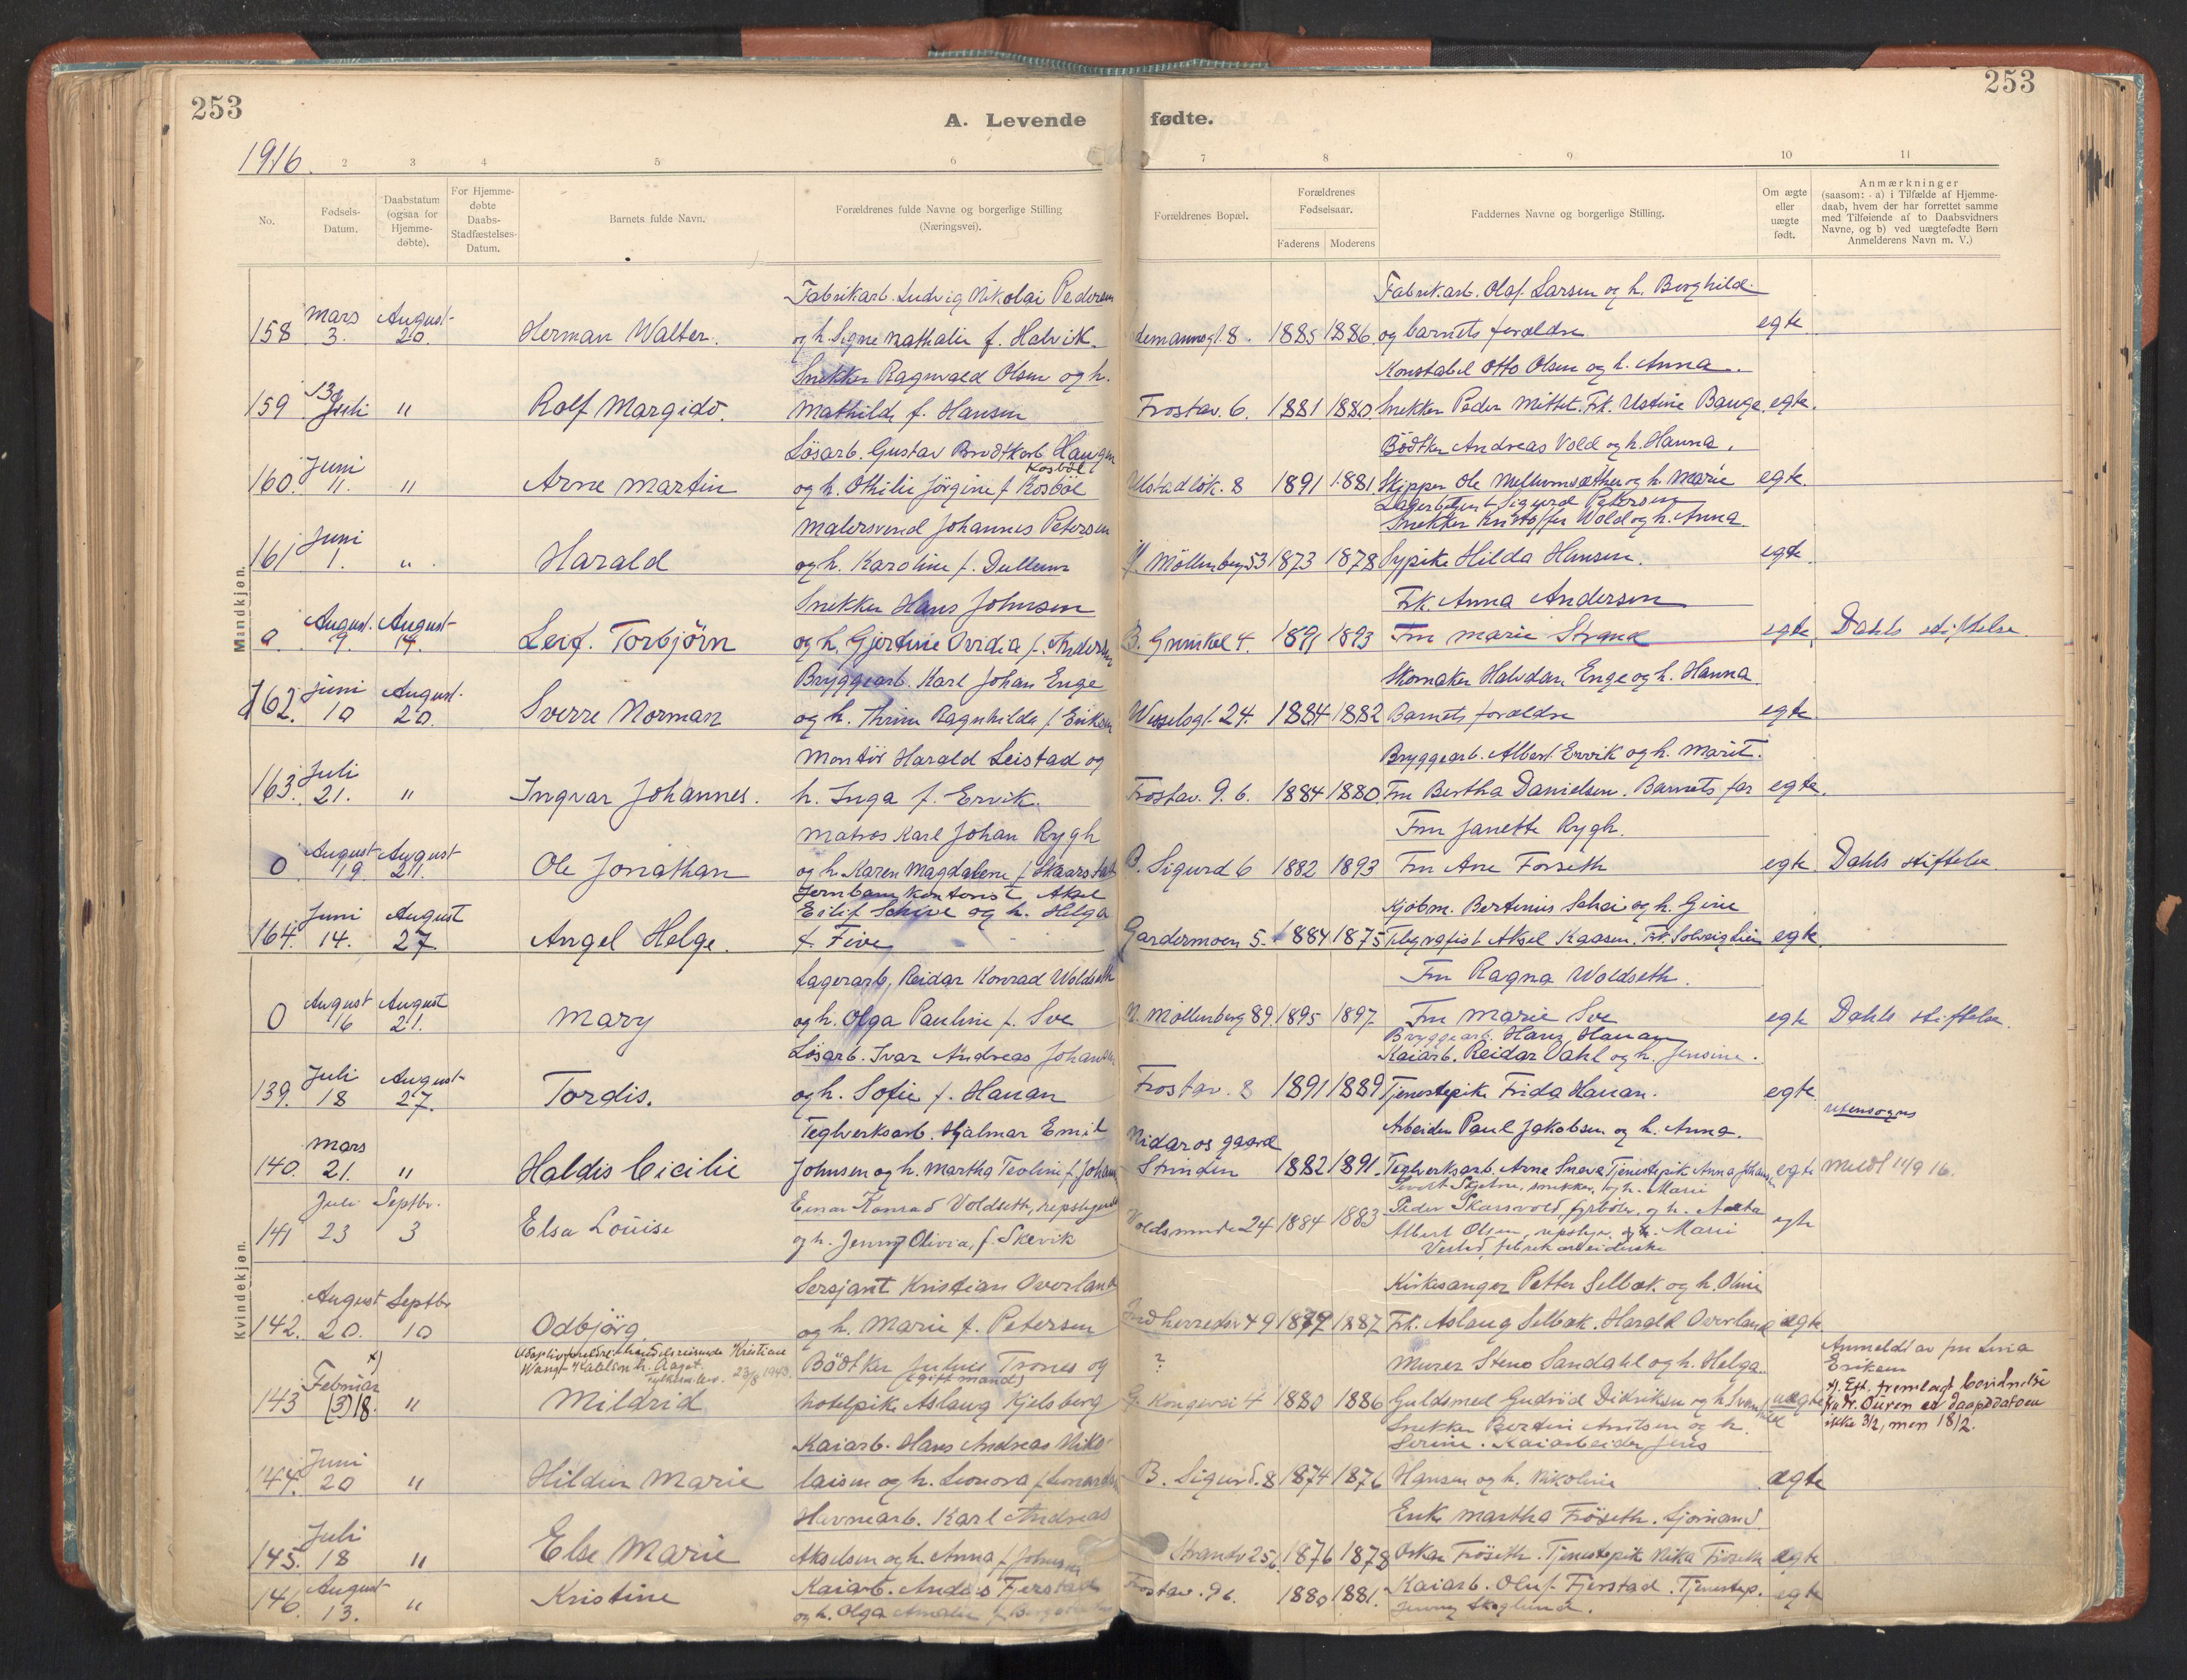 253
253
A. Levende fødte.
1916.
2 3 4 5 6 7 8 9 10 11
No.
Fødsels-Datum.
Daabstatum (ogsaa for Hjemme-døbte).
For Hjemme-døbte Daabs-Stadfæstelses-Datum.
Barnets fulde Navn.
Forældrenes fulde Navne og borgerlige Stilling (Næringsvei).
Forældrenes Bopæl.
Forældrenes Fødselsaar.
Faderens Moderens
Faddernes Navne og borgerlige Stilling.
Om ægte eller uægte født.
Anmærkninger (saasom: a) i Tilfælde af Hjemme-daab, hvem der har forrettet samme med Tilføiende af to Daabsvidners Navne, og b) ved uægtefødte Børn Anmelderens Navn m. V.)
Mandkjøn.
Fabrikarb. Ludvig Nikolai Pedersen Fabrik.arb. Olaf Larsen og h. Borghild
158 Mars 3. August 20. Herman Walter. og h. Signe Nathalie f. Halvik. 8. 1885 1886. og barnets forældre egte
Snekker Ragnvald Olsen og h. Konstabel Otto Olsen og h. Anna.
159 13 Juli " Rolf Margido. Mathilde f. Hansen Frostav. 6. 1881 1880. Snekker Peder Mittet. Frk. Ustine Bauge. egte.
Løsarb. Gustav Brodtkorb Haugen Bödtker Andreas Vold og h. Hanna.
160. Juni 11. " Arne Martin og h. Othilie Jörgine f. Kosböl Kosböl Ulstadløk. 8 1891 1881 Skipper Ole Mellumsæther og h. Marie egte.
Lagerbetjent Sigurd Petersen
Malersvend Johannes Petersen Snekker Kristoffer Wold og h. Anna.
161 Juni 1. " Harald og h. Karoline f. Dullum Möllenberg 53 1873 1878 Sypike Hilda Hansen. egte.
Snekker Hans Johnsen Frk. Anna Andersen
0. August 9. August 14. Leif. Torbjörn og h. Gjertine Ovidia f. Andersen B. Grunkel 4. 1891 1893 Fru Marie Strand egte Dahls stiftelse.
Bryggearb. Karl Johan Enge Skomaker Halvdan Enge og h. Hanna.
162. Juni 10 August 20. Sverre Norman og h. Thrine Ragnhilda f. Eriksen Wesselsgt. 24. 1884 1882 Barnets forældre egte
Montör Harald Leistad og Bryggearb. Albert Ervik og h. Marit.
163. Juli 21. " Ingvar Johannes. h. Inga f. Ervik. Frostav. 9.b. 1884 1880 Fru Bertha Danielsen. Barnets far egte.
Matros Karl Johan Rygh Fru Janette Rygh.
0 August 19 August 21. Ole Jonathan og h. Karen Magdalene f. Skaarstad B. Sigurd 6 1882 1893 Fru Ane Forseth egte Dahls stiftelse.
Jernbanekontorist Aksel
Eilif Schive og h. Helga Kjöbm. Bertinius Schei og h. Gine
164. Juni 14. August 27 Angel Helge. f. Five Gardermoen 5. 1884 1875 Telegrafist Aksel Kaasen. Frk. Solveig Lien egte.
Lagerarb. Reidar Konrad Woldseth Fru Ragna Woldseth.
0 August 16 August 21. Mary og h. Olga Pauline f. Sve N. Möllenberg 89. 1895 1897. Fru Marie Sve egte Dahls stiftelse.
Bryggearb. Hans Hanan
Løsarb. Ivar Andreas Johansen Kaiarb. Reidar Dahl og h. Jensine.
139. Juli 18 August 27. Tordis. og h. Sofie f. Hanan Frostav. 8 1891 1889 Tjenestepike Frida Hanan. egte
Teglverksarb. Hjalmar Emil Nidaros gaard Arbeider Paul Jakobsen og h. Anna. utensogns
140. Mars 21. " Haldis Cicilie Johnsen og h. Martha Teoline f. Johansen Strinden 1882 1891. Teglverksarb. Arne Sneve Tjenestepike Anna Johansen egte Meldt 11/9 16.
Kvindekjøn.
Sivert Skjetne, snekker, og h. Marie
Einar Konrad Voldseth, repslager Peder Skarsvold, fyrböter, og h. Aasta
141 Juli 23 Septbr. 3 Elsa Louise og h. Jenny Olivia, f. Skevik Voldsminde 24 1884 1883 Albert Olsen, repslager. og h. Marie egte
fabrikarbeiderske
Sersjant Kristian Overland Kirkesanger Petter Selbæk. og h. Oline
142. August 20. Septbr 10 Odbjörg og h. Marie f. Petersen Indherredsv 49 1887 Frk. Aslaug Selbæk. Harald Overland ægte
Adoptivforeldre: handelsreisende Kristian
Wang h. Aagot. 23/8 1943.
Bödtker Julius Trones og (gift mand) ? Murer Steno Sandahl og h. Helga. Anmeldt av fru Lina Eriksen
143 x) Februar (3) 18. " Mildrid hotelpike Aslaug Kjelsberg G. Kongevei 4 1880 1886 Guldsmed Gudröd Didriksen og h. Svanhild uægte x). Eft. fremlagt bevidnelse fra Dr. Ouren er daapsdatoen ikke 3/2, men 18/2.
Kaiarb. Hans Andreas Niko- Snekker Bertin Arntsen og h.
Serine. Kaiarbeider Jens
144. Juni 20 " Hildur Marie laisen og h. Leonora f. Leonardsen B. Sigurd. 8 1874 1876 Hansen og h. Nikoline ægte
Havnearb. Karl Andreas Enke Martha Fröseth. Sjømand
145. Juli 18 " Else Marie Akselsen og h. Anna f. Johnsen Strandv 25b. 1876 1878 Oskar Fröseth. Tjenestepik Nika Fröseth ægte
146. August 13. " Kristine Kaiarb. Anders Fjerstad Frostav. 9b. 1880 1881. Kaiarb. Oluf Fjerstad. Tjenestep. egte
og h. Olga Amalie f. Jenny Skoglund.